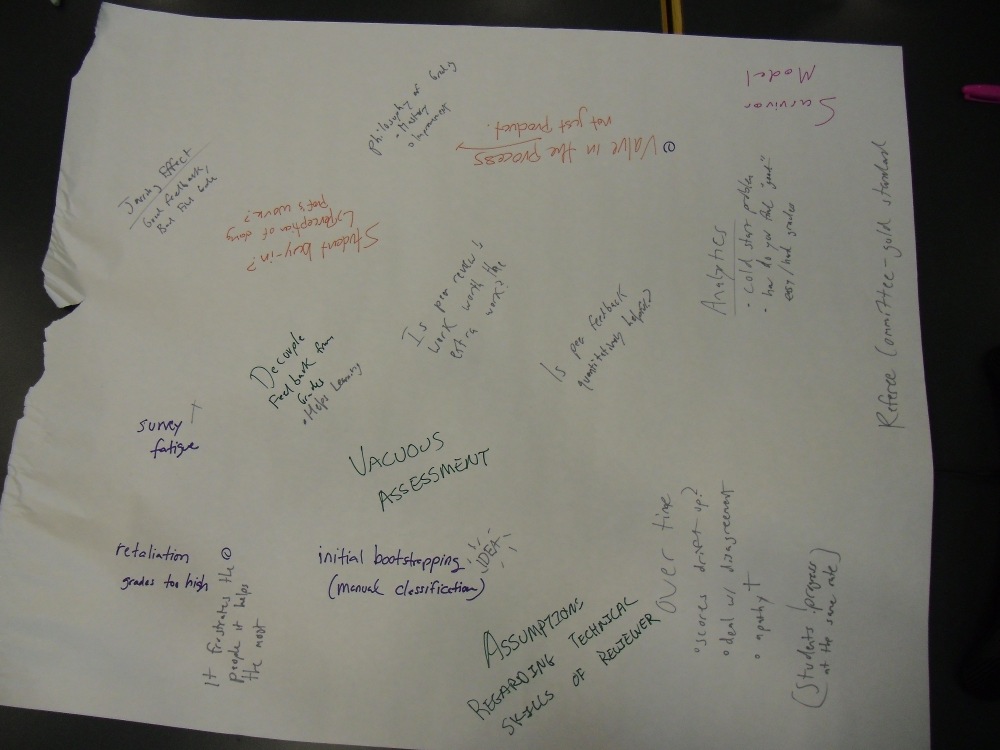 Survivor
Model
Philosophy of Grading
• Mastery
• Improvement
Value in the process
not just product.
Jarring Effect
Good Feedback,
But First Grade,
Student buy-in?
↳ perception of doing
prof's work?
Analytics
• cold start problem
• how do you find "good"
easy/hard grades
Referee Committee - gold standard
Is peer review's
work worth the
extra work?
Is peer feedback
quantitatively helpful
Decouple
Feedback from
Grades
• Helps Learning
survey
fatigue
VACUOUS
ASSESSMENT
retaliation
grades too high
It frustrates the
people it helps
the most
initial bootstrapping
(manual classification)
IDEA
ASSUMPTIONS
REGARDING TECHNICAL
SKILLS OF REVIEWER
over time
• scores drift up?
• deal w/ disagreement
• apathy +
(Students progress
at the same rate)